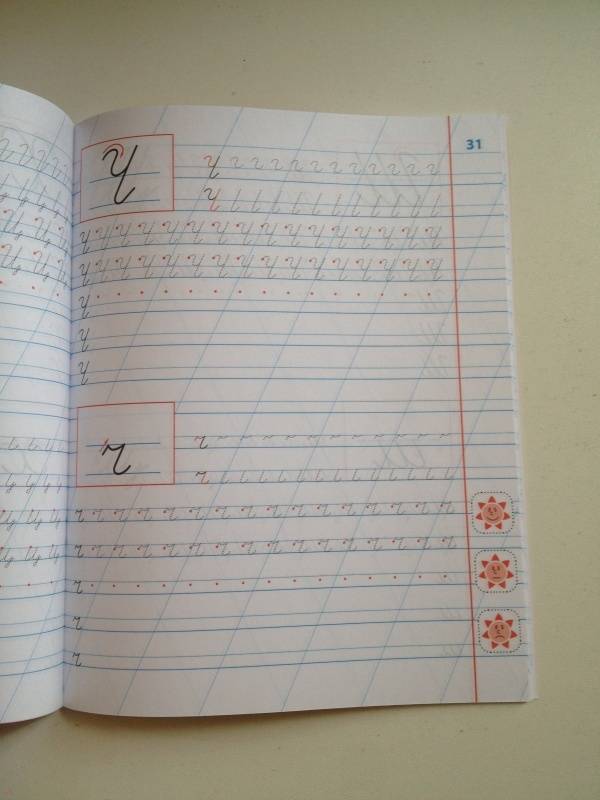 31
Ч
Ч
Ч
Ч Ч Ч Ч Ч Ч Ч Ч Ч Ч Ч Ч Ч Ч Ч Ч
Ч Ч Ч Ч Ч Ч Ч Ч Ч Ч Ч Ч Ч Ч Ч Ч
Ч
Ч
Ч
ч
ч
ч
ч ч ч ч ч ч ч ч ч ч ч ч ч ч ч ч ч
ч ч ч ч ч ч ч ч ч ч ч ч ч ч ч ч ч
ч
ч
ч